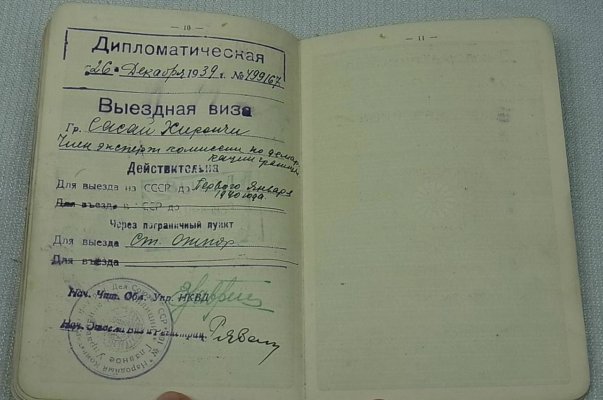 — 10 —
Дипломатическая
26 Декабря 1939 г. № 499167
Выездная виза
Гр. Сасай Хироичи
Член эксперт комиссии по демар
кации границы
Действительна
Для выезда из СССР до Первого Января
1940 года
Для въезда в СССР до
Через пограничный пункт
Для выезда ст. Отпор
Для въезда
Нач. Чит. Обл. Упр. НКВД
Нач. Отдела Виз и Регистрац.
— 11 —